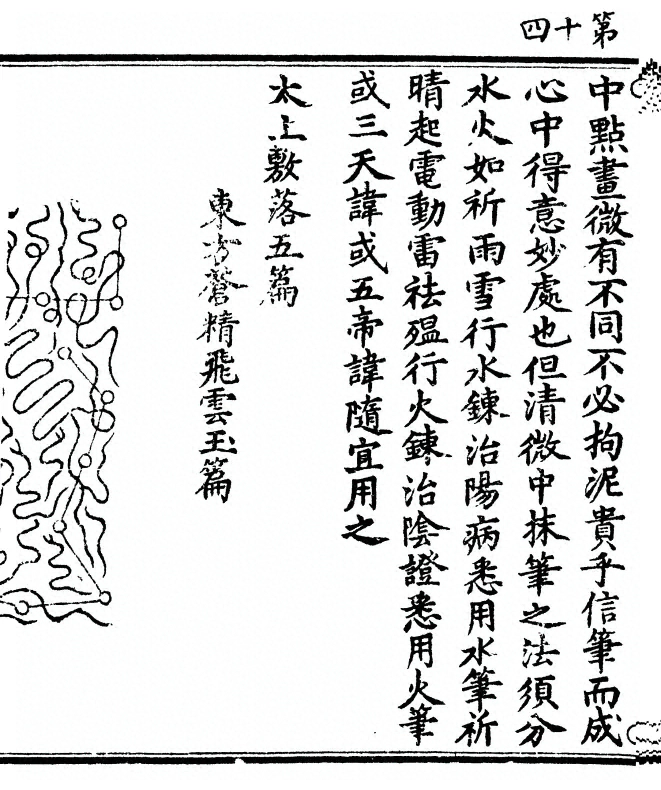 第十四
中點畫微有不同不必拘泥貴乎信筆而成
心中得意妙處也但清微中抹筆之法須分
水火如祈雨雪行水鍊治陽病悉用水筆祈
晴起電動雷祛瘟行火鍊治陰證悉用火筆
或三天諱或五帝諱隨宜用之
太上敷落五篇
東方蒼精飛雲玉篇